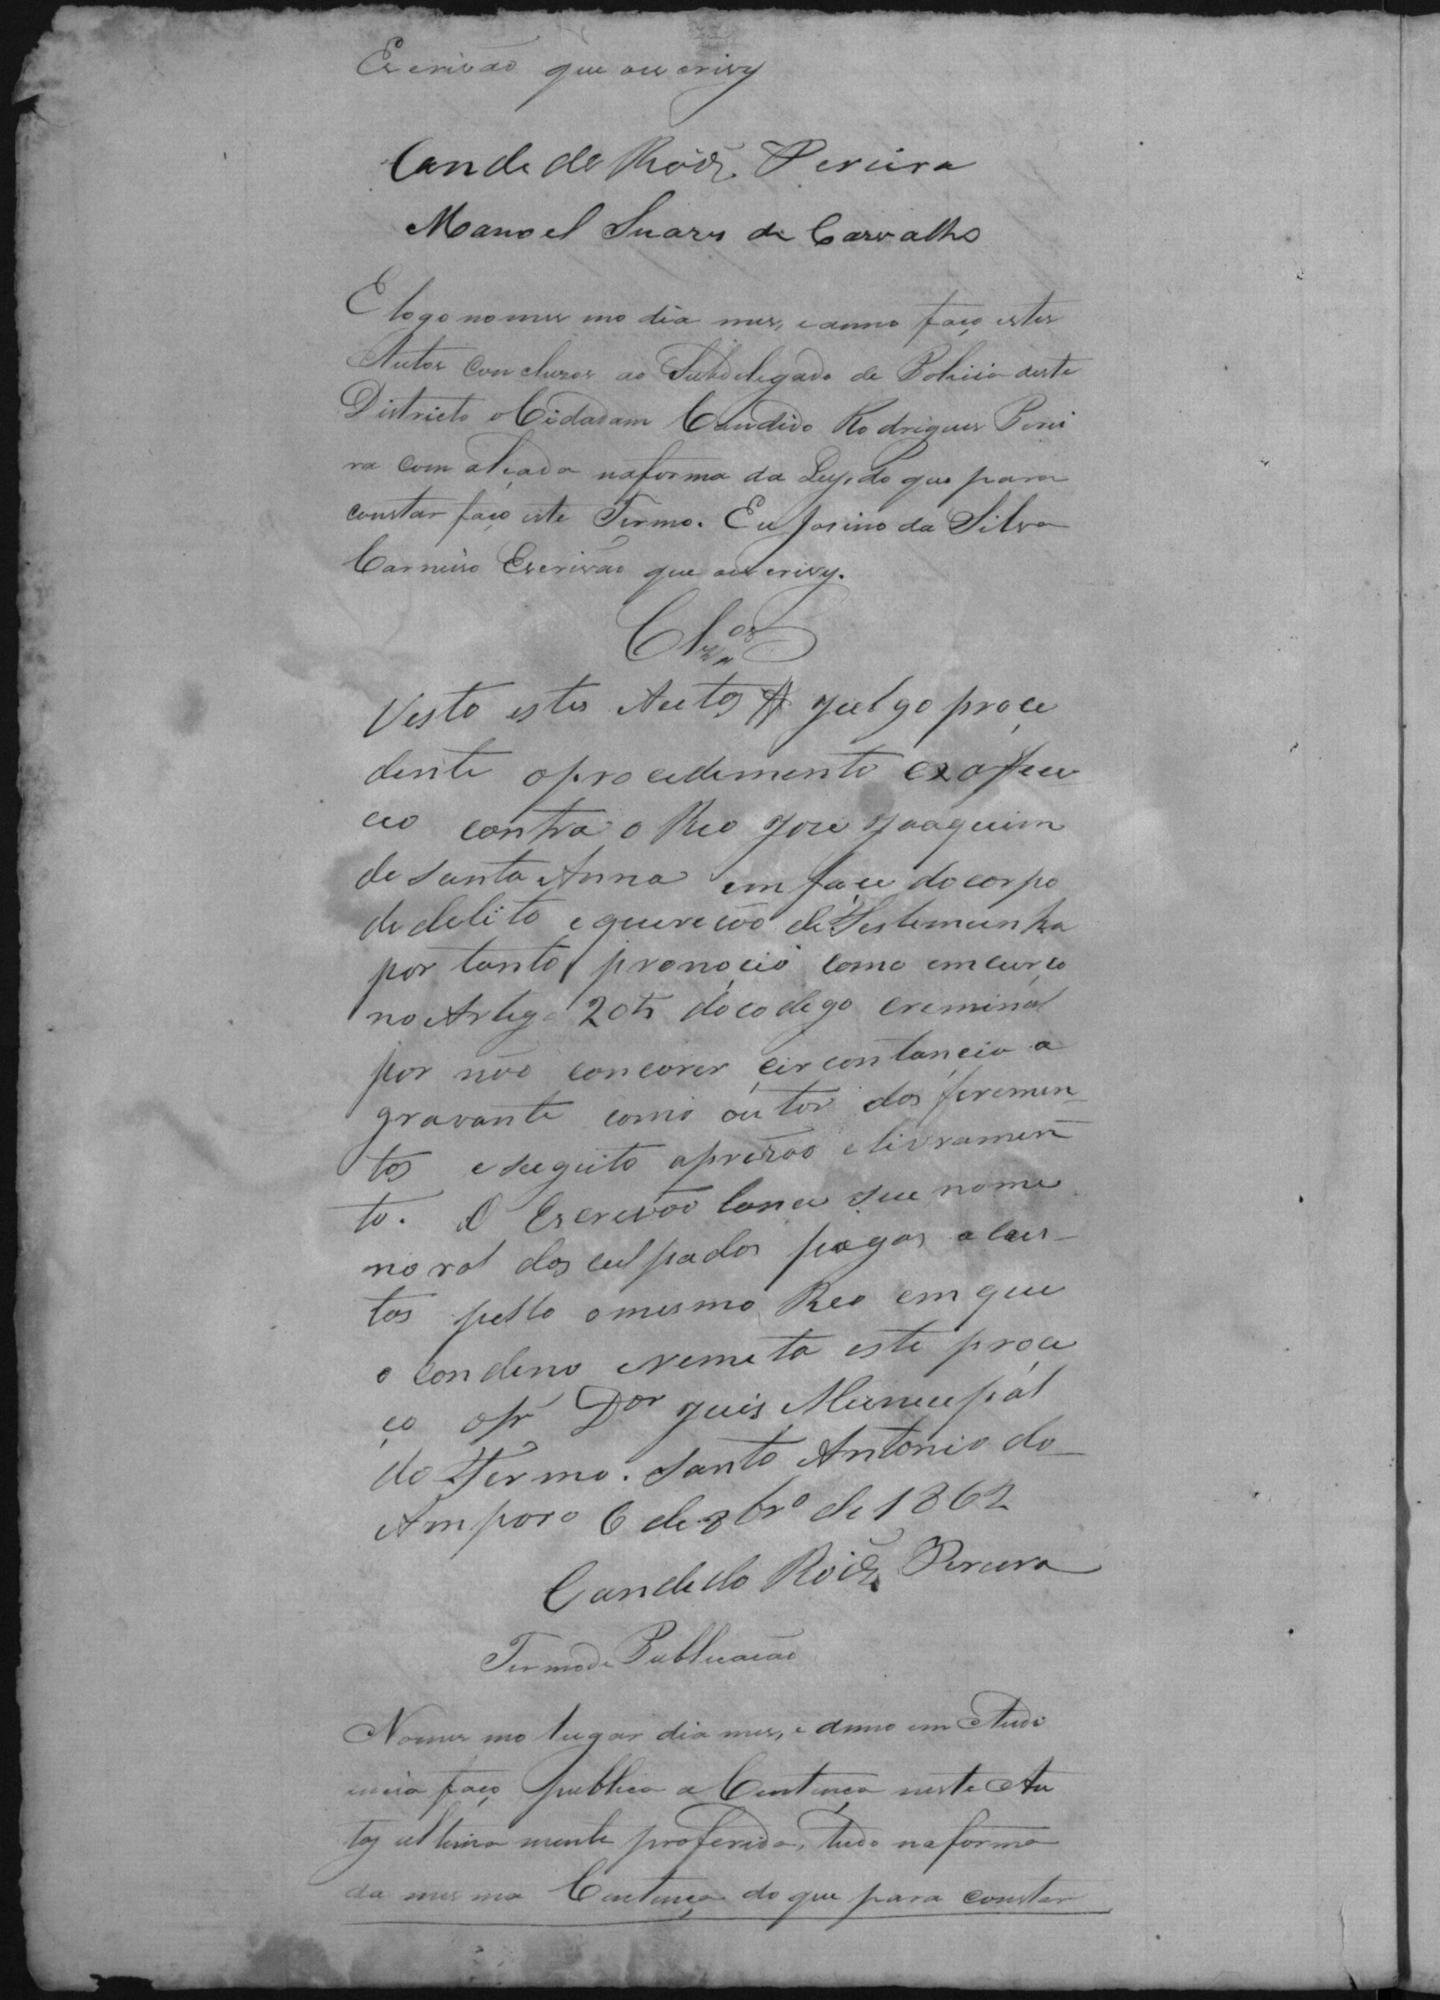 Escrivão que ouescrivy
Candedo Roĩz Pereira
Manoel Suares de Carvalho
E logo nomes mo dia mes, e anno faço estes
Autos Concluzos ao Subdelegado de Policia deste
Districto o Cidadam Candido Rodrigues Perei
ra com alçada naforma da Ley, do que para
constar faço este Termo. Eu Josino da Silva
Carneiro Escrivão que ouescrivy.
Clzos
Visto estes Autos julgo proce
dente oprocedimento exofeu
cio contra o Reo Joze Joaquim
de Santa Anna em façe do corpo
de delito e quereição de Testemunha
por tanto pronoçio como emcurço
no Artego 201 do codego creminal
por não concorer çircontançia a
gravante como outor dos feremen
tos e sugeito aprezão e livramen
to. O Escrevão lance seu nome
no rol dos culpados pagas a cus
tas pello o mesmo Reo em que
o condeno e remeta este proce
ço opr Dor Juis Municipal
do Termo. Santo Antonio do
Amparo 6 de 8brº de 1862
Candedo Roĩz Pereira
Termo de Publicacão
Nomes mo lugar dia mes, e anno em Audi
encia faço publica a Centença neste Au
tos ultima mente proferida, tudo naforma
da mes ma Centença do que para constar